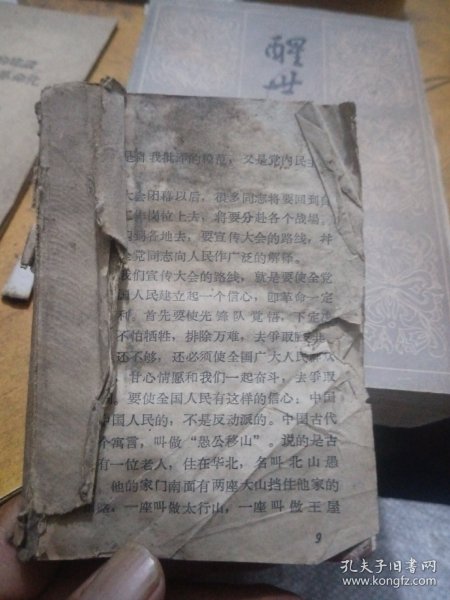 醒世
是自我批评的模范，又是党内民主
大会闭幕以后，很多同志将要回到自
工作岗位上去，将要分赴各个战场。
到各地去，要宣传大会的路线，并
全党同志向人民作广泛的解释。
我们宣传大会的路线，就是要使全党
国人民建立起一个信心，即革命一定
利。首先要使先锋队觉悟，下定决
不怕牺牲，排除万难，去争取胜利
还不够，还必须使全国广大人民群众
，甘心情愿和我们一起奋斗，去争取
。要使全国人民有这样的信心：中国
中国人民的，不是反动派的。中国古代
个寓言，叫做“愚公移山”。说的是古
有一位老人，住在华北，名叫北山愚
他的家门南面有两座大山挡住他家的
路，一座叫做太行山，一座叫做王屋
9
孔夫子旧书网
www.kongfz.com